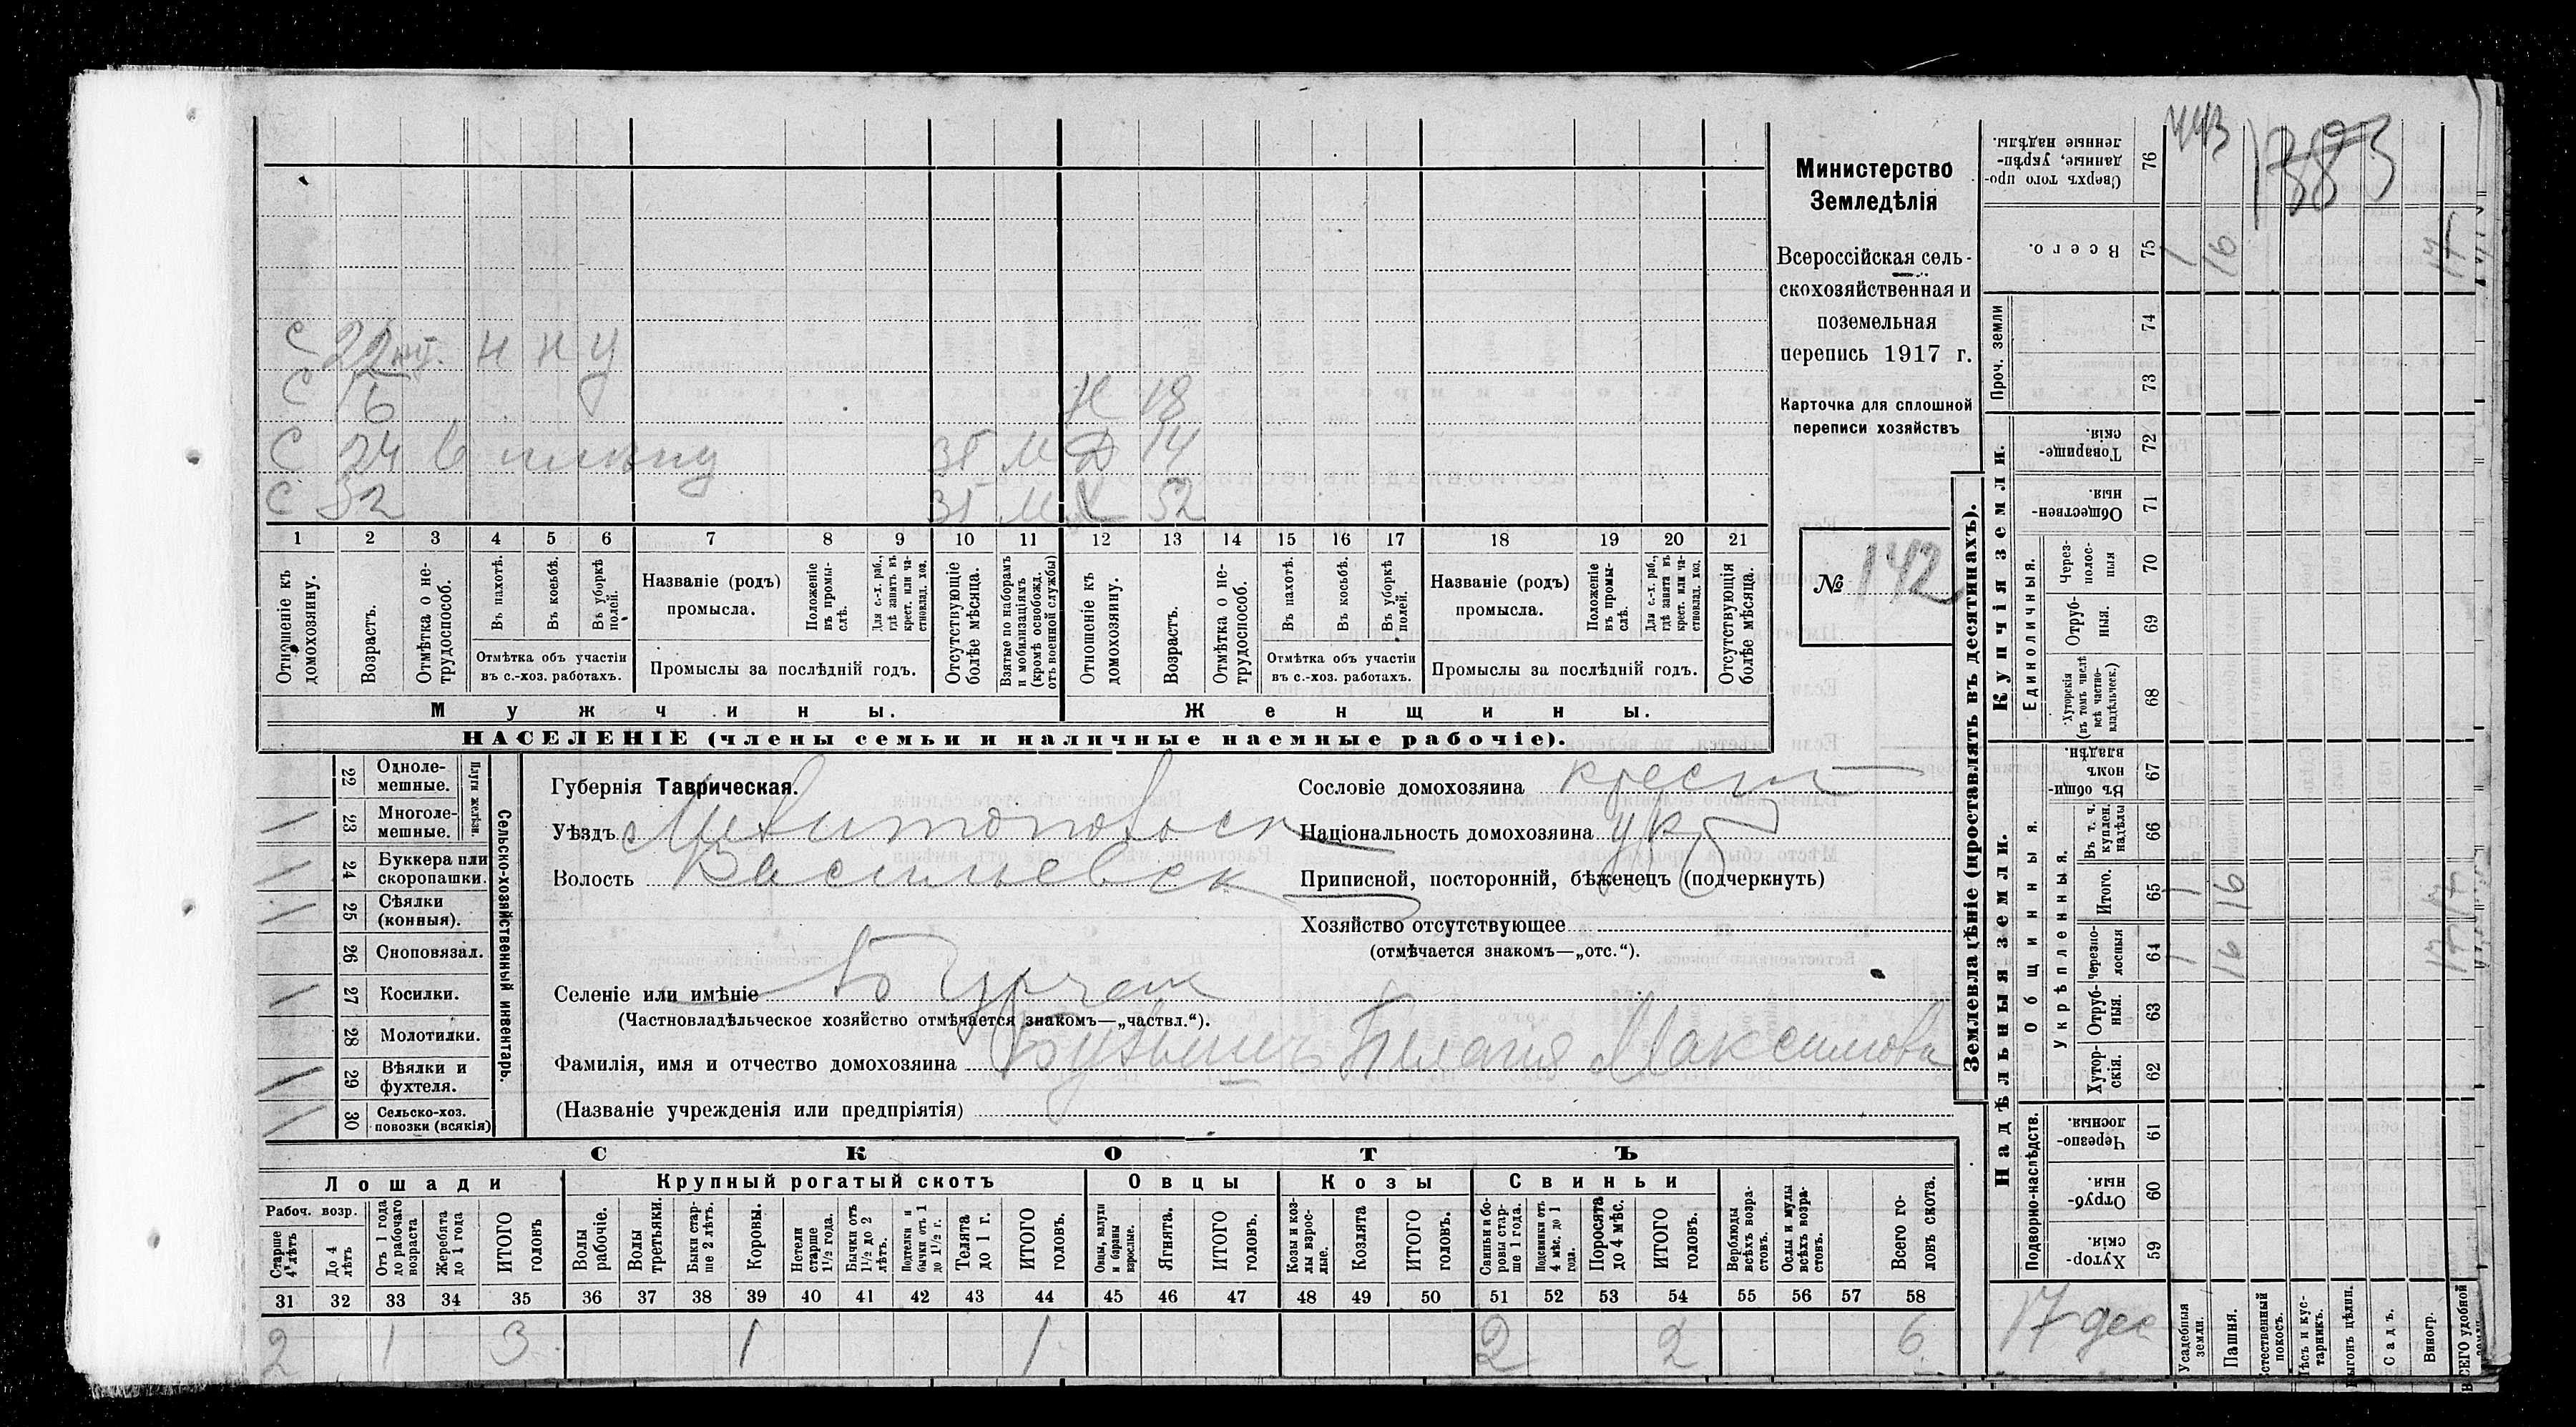 443
1383
Министерство
Земледѣлія
Всероссійская сель-
скохозяйственная и
поземельная
перепись 1917 г.
Карточка для сплошной
переписи хозяйствъ
№ 142
С 22 Н Н У
С 16 Н 18
С 24 в плену 3г М Д 14
С 32 3г М Х 52
1 2 3 4 5 6 7 8 9 10 11 12 13 14 15 16 17 18 19 20 21
Отношеніе къ домохозяину.
Возрастъ.
Отмѣтка о не-трудоспособ.
Въ пахотѣ.
Въ косьбѣ.
Въ уборкѣ полей.
Отмѣтка объ участіи
въ с.-хоз. работахъ.
Названіе (родъ)
промысла.
Положеніе въ промы-слѣ.
Для с.-х. раб., гдѣ занятъ въ крест. или ча-стновлад. хоз.
Промыслы за послѣдній годъ.
Отсутствующіе болѣе мѣсяца.
Взятые по наборамъ и мобилизаціямъ (кромѣ освобожд. отъ военной службы)
Отношеніе къ домохозяину.
Возрастъ.
Отмѣтка о не-трудоспособ.
Въ пахотѣ.
Въ косьбѣ.
Въ уборкѣ полей.
Отмѣтка объ участіи
въ с.-хоз. работахъ.
Названіе (родъ)
промысла.
Положеніе въ промы-слѣ.
Для с.-х. раб., гдѣ занятъ въ крест. или ча-стновлад. хоз.
Промыслы за послѣдній годъ.
Отсутствующія болѣе мѣсяца.
Мужчины.
Женщины.
НАСЕЛЕНІЕ (члены семьи и наличные наемные рабочіе).
Сельско-хозяйственный инвентарь.
Плуги желѣзн.
22 Одноле-мешные.
/ 23 Многоле-мешные.
/ 24 Буккера или скоропашки.
/ 25 Сѣялки (конныя).
26 Сноповязал.
/ 27 Косилки.
28 Молотилки.
/ 29 Вѣялки и фухтеля.
/ 30 Сельско-хоз. повозки (всякія)
Губернія Таврическая.
Уѣздъ Мелитопольск
Волость Васильевск
Селеніе или имѣніе Бурчак
(Частновладѣльческое хозяйство отмѣчается знакомъ—„частвл.“).
Фамилія, имя и отчество домохозяина Пелагія Максимова
(Названіе учрежденія или предпріятія)
Сословіе домохозяина крест
Національность домохозяина укр
Приписной, посторонній, бѣженецъ (подчеркнуть)
Хозяйство отсутствующее
(отмѣчается знакомъ—„отс.“).
СКОТЪ
Лошади
Крупный рогатый скотъ
Овцы
Козы
Свиньи
Рабоч. возр.
Старше 4 лѣтъ
До 4 лѣтъ
Отъ 1 года до рабочаго возраста
Жеребята до 1 года
ИТОГО головъ
Волы рабочіе.
Волы третьяки.
Быки стар-ше 2 лѣтъ.
Коровы.
Нетели старше 1½ года.
Бычки отъ 1½ до 2 лѣтъ.
Подтелки и бычки отъ 1 до 1½ г.
Телята до 1 г.
ИТОГО головъ.
Овцы, валухи и бараны взрослые.
Ягнята.
ИТОГО головъ.
Козы и коз-лы взрос-лые.
Козлята
ИТОГО головъ.
Свиньи и бо-ровы стар-ше 1 года.
Подсвинки отъ 4 мѣс. до 1 года.
Поросята до 4 мѣс.
ИТОГО головъ.
Верблюды всѣхъ возра-стовъ.
Ослы и мулы всѣхъ возра-стовъ.
Всего го-ловъ скота.
31 32 33 34 35 36 37 38 39 40 41 42 43 44 45 46 47 48 49 50 51 52 53 54 55 56 57 58
2 1 3 1 1 2 2 6
Землевладѣніе (проставлять въ десятинахъ).
Купчія земли.
Надѣльныя земли.
Проч. земли
Единоличныя.
Общинныя.
Укрѣпленныя.
Подворно-наслѣдств.
Сверхъ того про-данные, укрѣп-ленные надѣлы. 76
Всего. 75 1 16 17
74
73
Товарище-скія. 72
Обществен-ныя. 71
Через-полос-ныя 70
Отруб-ныя. 69
Хуторскія (въ томъ числѣ всѣ частно-владѣльческ.) 68
Въ общин-номъ владѣн. 67
Въ т. ч. куплен. надѣлы 66
Итого. 65 1 16 17
Черезпо-лосныя 64 1 16 17
Отруб-ныя. 63
Хутор-скія. 62
Черезпо-лосныя. 61
Отруб-ныя. 60
Хутор-скія. 59
17 дес
Усадебныя земли.
Пашня.
Естественный покосъ.
Лѣсъ и кус-тарникъ.
Выгонъ цѣлин.
Садъ.
Виногр.
ВСЕГО удобной